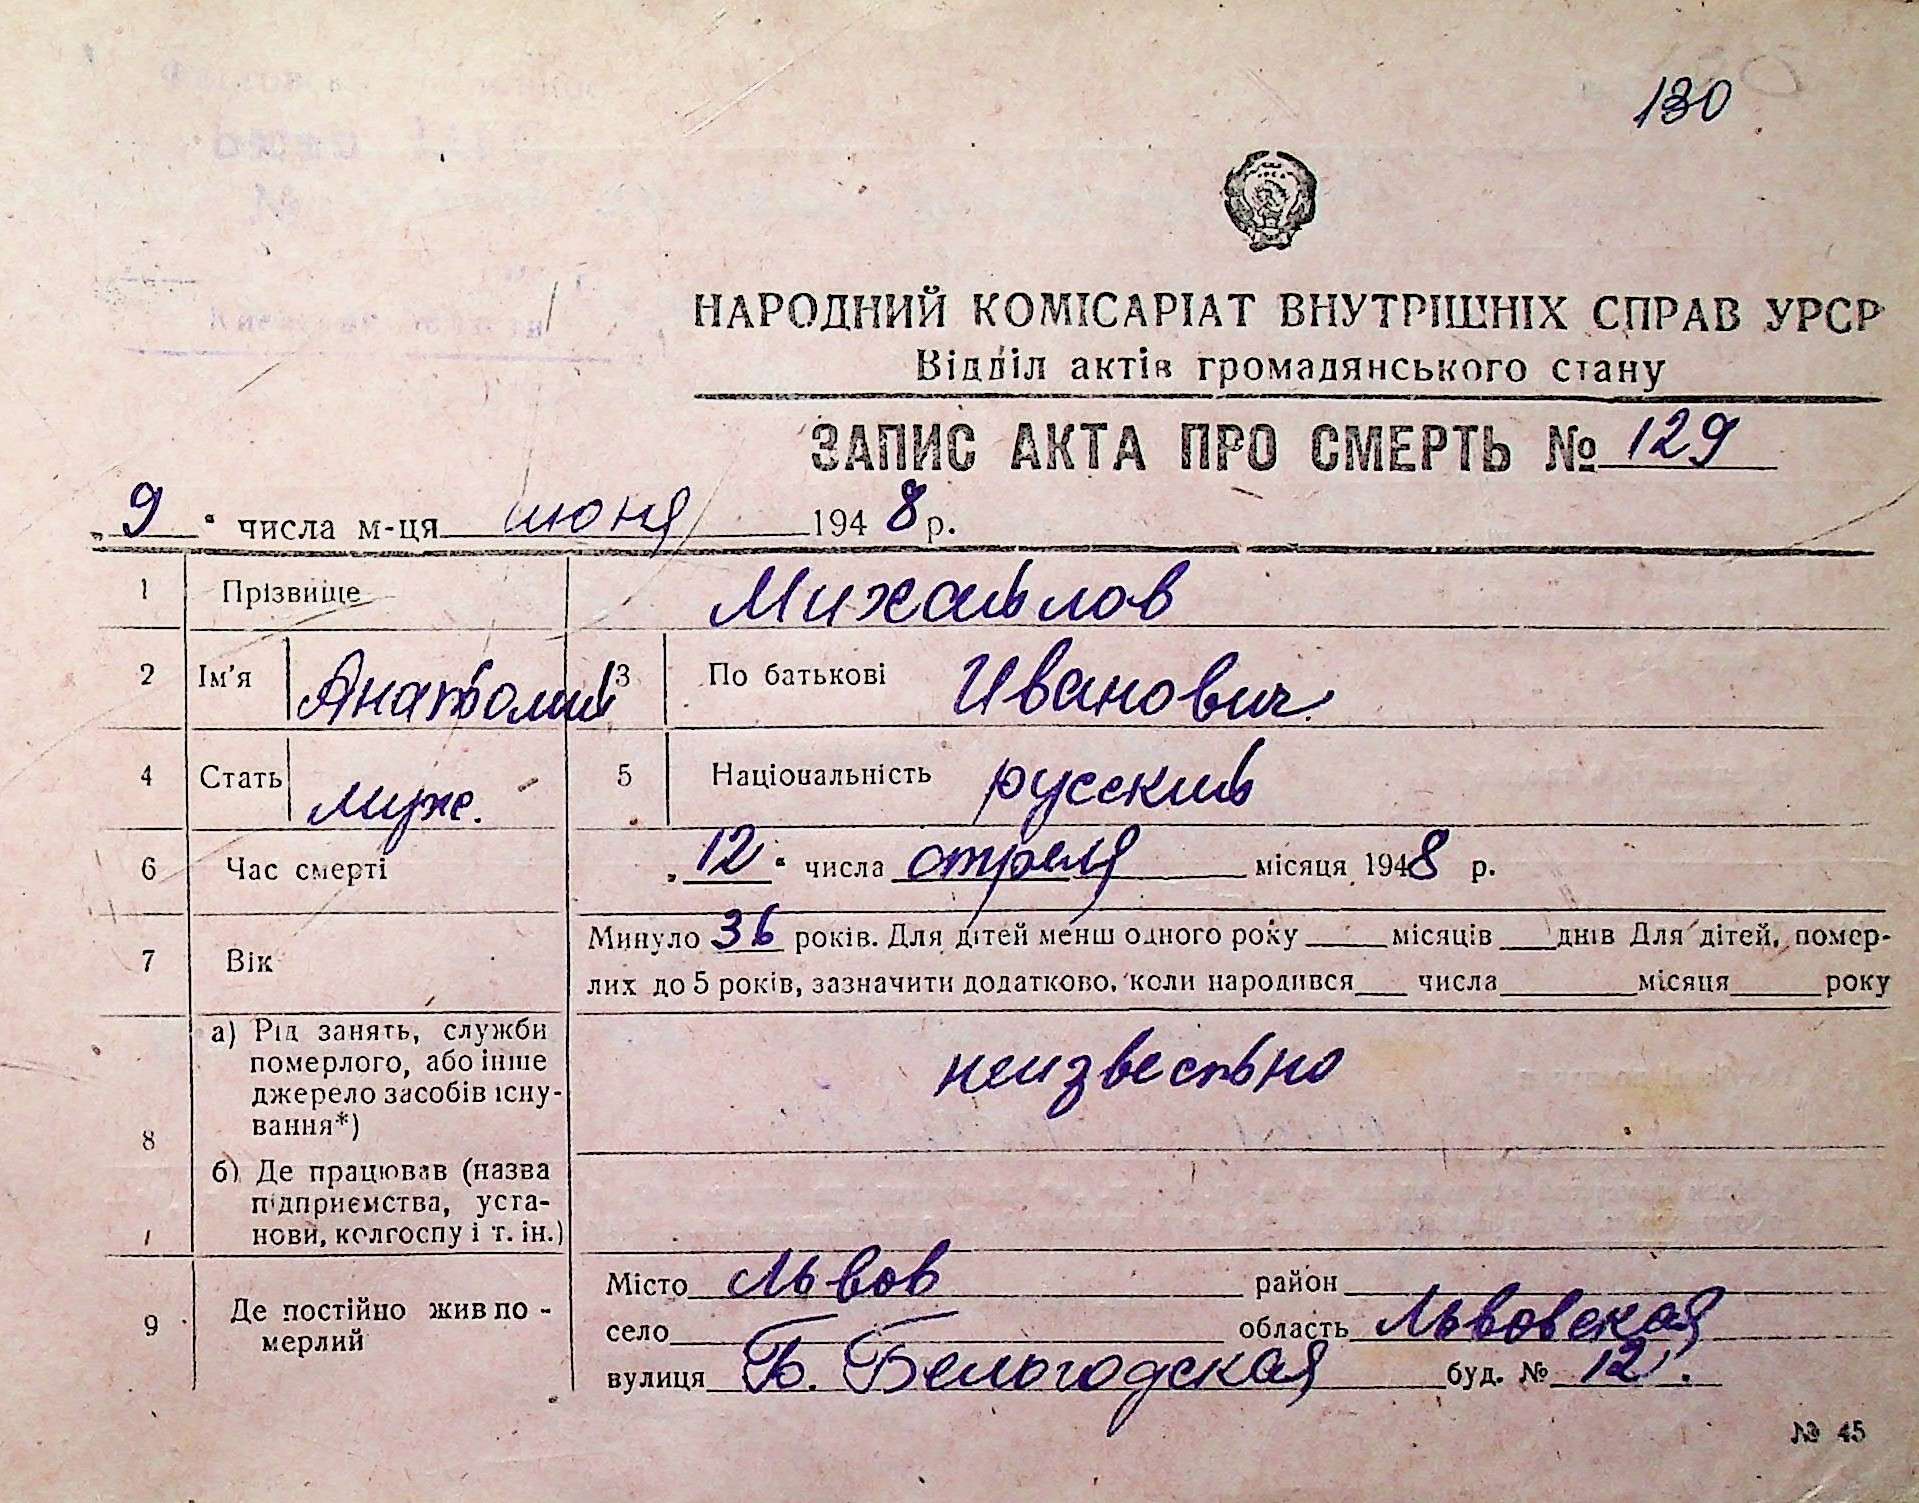 130
НАРОДНИЙ КОМІСАРІАТ ВНУТРІШНІХ СПРАВ УРСР
Відділ актів громадянського стану
ЗАПИС АКТА ПРО СМЕРТЬ № 129
„9" числа м-ця июня 1948 р.
1 Прізвище Михайлов
2 Ім'я Анатолий 3 По батькові Иванович
4 Стать муж. 5 Національність русский
6 Час смерті „12" числа апреля місяця 1948 р.
7 Вік Минуло 36 років. Для дітей менш одного року ____ місяців ____ днів Для дітей, помер-
лих до 5 років, зазначити додатково, коли народився ____ числа ____ місяця ____ року
8 а) Рід занять, служби
померлого, або інше
джерело засобів існу-
вання*) неизвестно
б) Де працював (назва
підприємства, уста-
нови, колгоспу і т. ін.)
9 Де постійно жив по-
мерлий
Місто Львов район
село область Львовская
вулиця Б. Белогодская буд. № 12.
№ 45